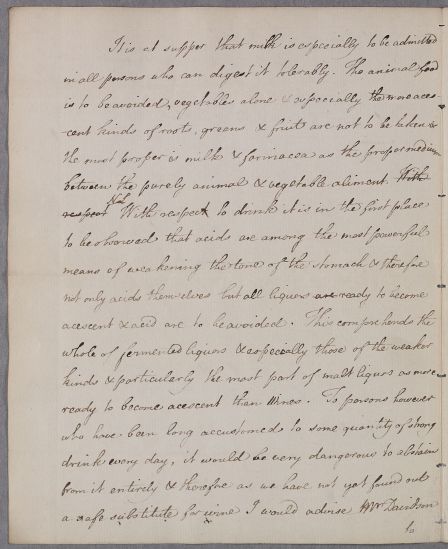 It is at supper that milk is especially to be admitted
in all persons who can digest it tolerably. The animal food
is to be avoided, vegetables alone & especially the more aces-
cent kinds of roots, greens & fruit are not to be taken &
the most proper is milk & farinacea as the proper medium
between the purely animal & vegetable aliment. With
respect
N.d With respect to drink it is in the first place
to be observed that acids are among the most powerful
means of weakening the tone of the stomach & therefore
not only acids themselves but all liquors are ready to become
acescent & acid are to be avoided. This comprehends the
whole of fermented liquors & especially those of the weaker
kinds & particularly the most part of malt liquors as more
ready to become acescent than Wines. To persons however
who have been long accustomed to some quantity of strong
drink every day, it would be very dangerous to abstain
from it entirely & therefore as we have not yet found out
a safe substitute for wine I would advise Mr Davidson
to